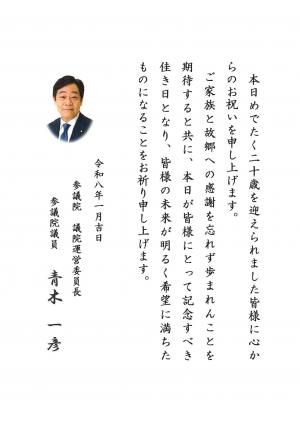 本日めでたく二十歳を迎えられました皆様に心か
らのお祝いを申し上げます。
ご家族と故郷への感謝を忘れず歩まれんことを
期待すると共に、本日が皆様にとって記念すべき
佳き日となり、皆様の未来が明るく希望に満ちた
ものになることをお祈り申し上げます。
令和八年一月吉日
参議院 議院運営委員長
参議院議員 青木 一彦